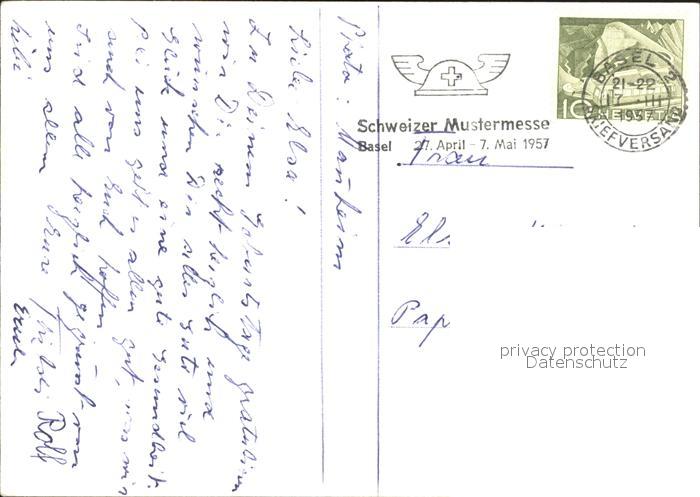 Porto: Mannheim
Liebe Elsa!
Zu Deinem Geburtstage gratulieren
wir Dir recht herzlich und
wünschen Dir alles Gute viel
Glück und eine gute Gesundheit.
Bei uns geht es allen gut, was wir
auch von Euch hoffen.
Seid alle herzlich gegrüsst von
uns allem Eure
liebi
Rolf
Schweizer Mustermesse
Basel 27. April - 7. Mai 1957
BASEL 2
21-22
17. III
1957
BRIEFVERSAND
10
HELVETIA
Frau
Els
Pap
privacy protection
Datenschutz